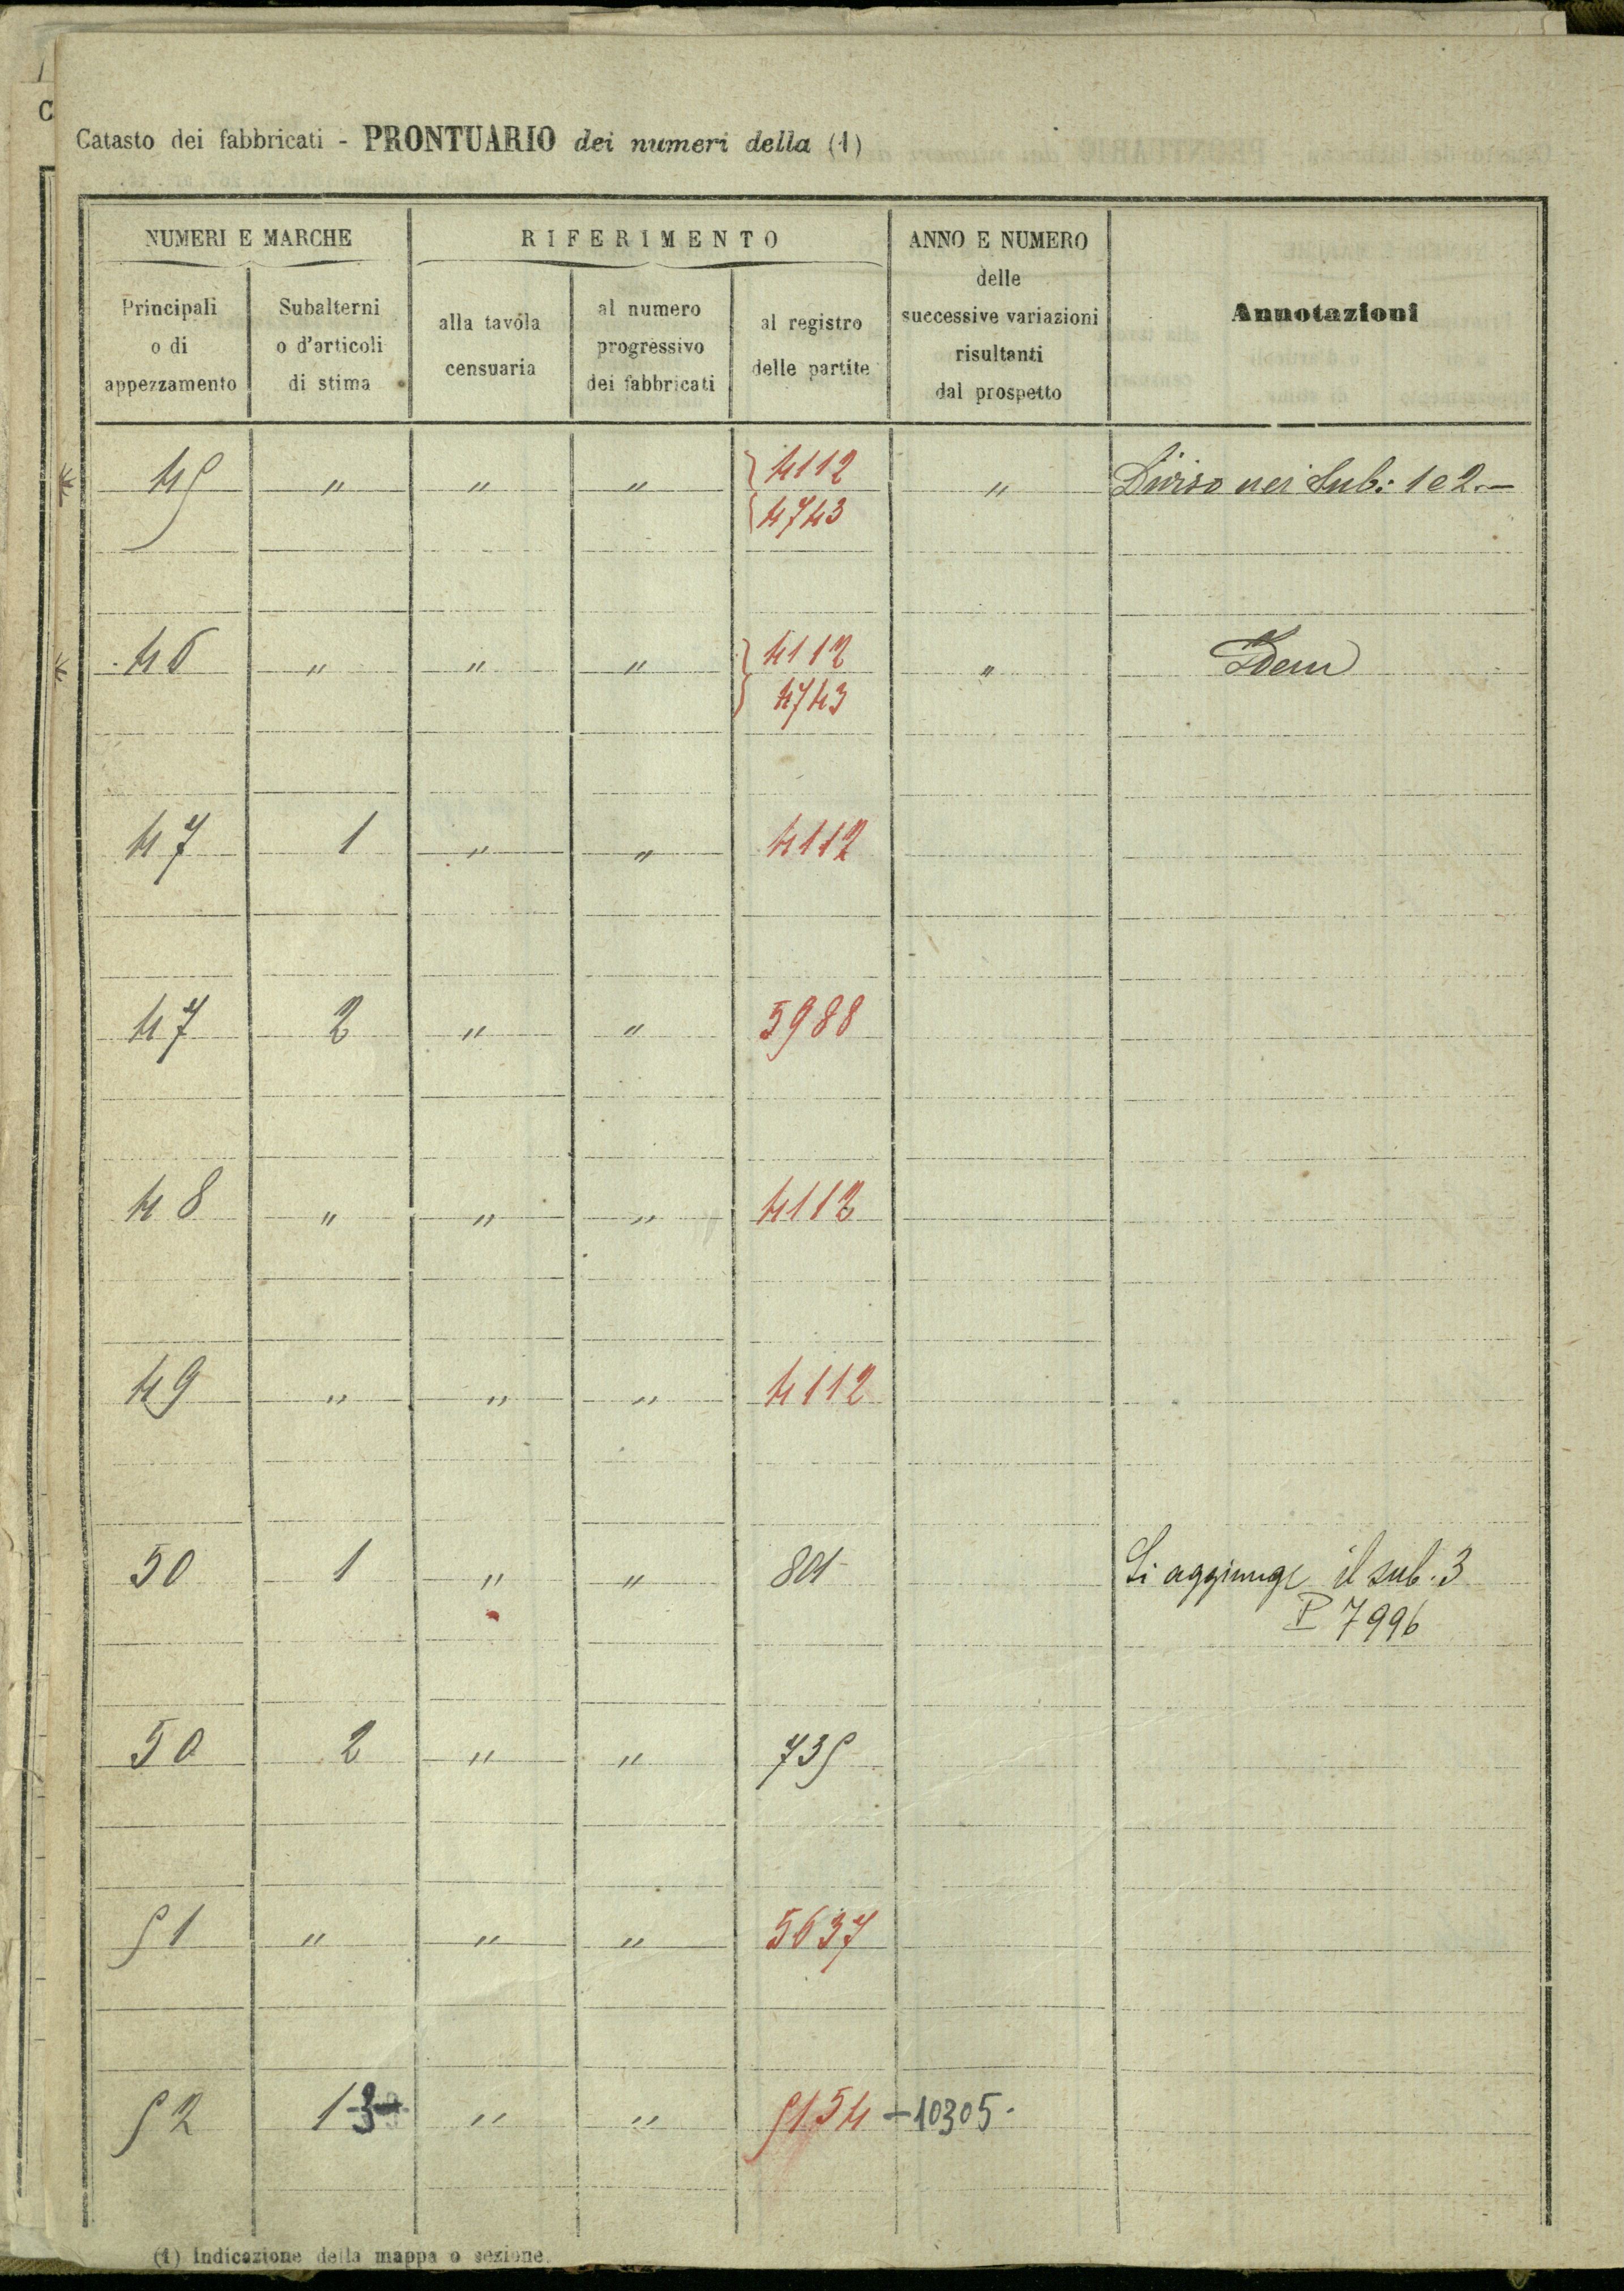 Catasto dei fabbricati - PRONTUARIO dei numeri della (1)
NUMERI E MARCHE
RIFERIMENTO
ANNO E NUMERO
delle
successive variazioni
risultanti
dal prospetto
Annotazioni
Principali
o di
appezzamento
Subalterni
o d'articoli
di stima
alla tavola
censuaria
al numero
progressivo
dei fabbricati
al registro
delle partite
45 " " " 4112 " Diviso nei Sub: 1 e 2.—
4743
46 " " " 4112 " Idem
4743
47 1 " " 4112
47 2 " " 5988
48 " " " 4112
49 " " " 4112
50 1 " " 801 Si aggiunge il sub. 3
P 7996
50 2 " " 735
51 " " " 5637
52 1-3 " " 5154 -10305.
(1) Indicazione della mappa o sezione.